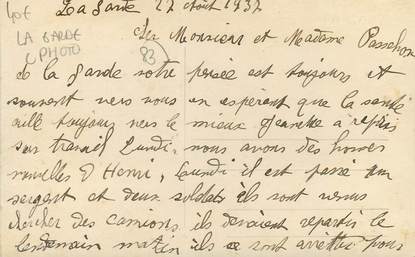 40€
La Garde 27 Août 1937
LA GARDE
(PHOTO
83
Cher Monsieur et Madame
de la Garde notre pensée est toujours et
souvent vers vous en espérant que la santé
aille toujours vers le mieux Jeanette a repris
son travail Lundi, nous avons des bonnes
nouvelles D Henri, Lundi il est passé un
sergent et deux soldats ils sont venus
chercher des camions ils devaient repartir le
lendemain matin ils se sont arrettés pour